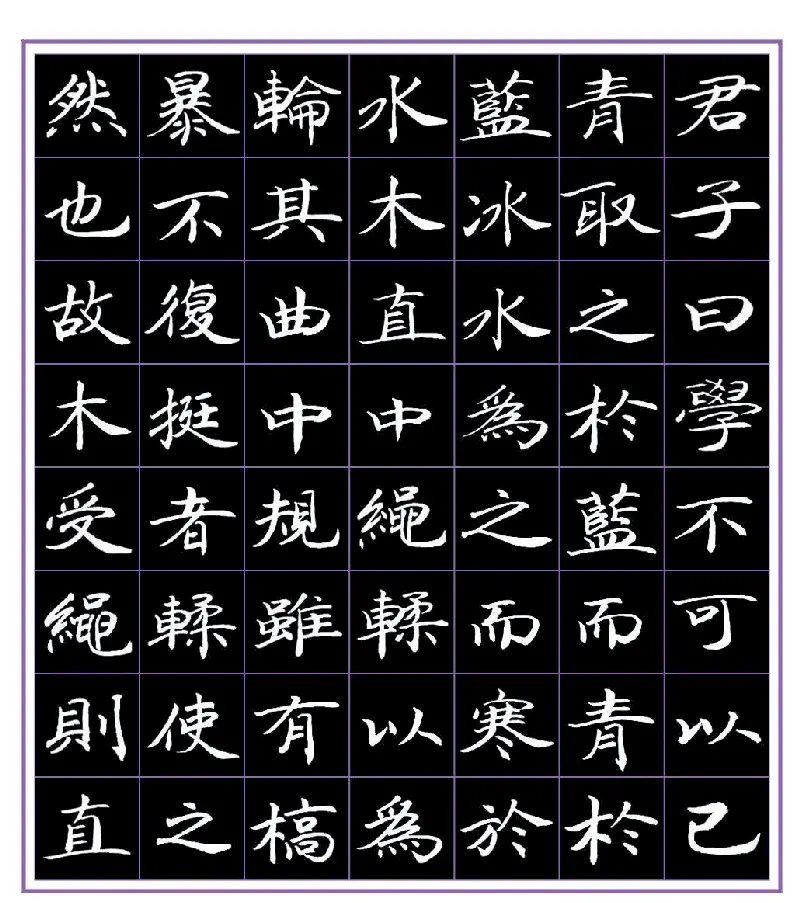 君子曰學不可以已
青取之於藍而青於
藍冰水爲之而寒於
水木直中繩輮以爲
輪其曲中規雖有槁
暴不復挺者輮使之
然也故木受繩則直